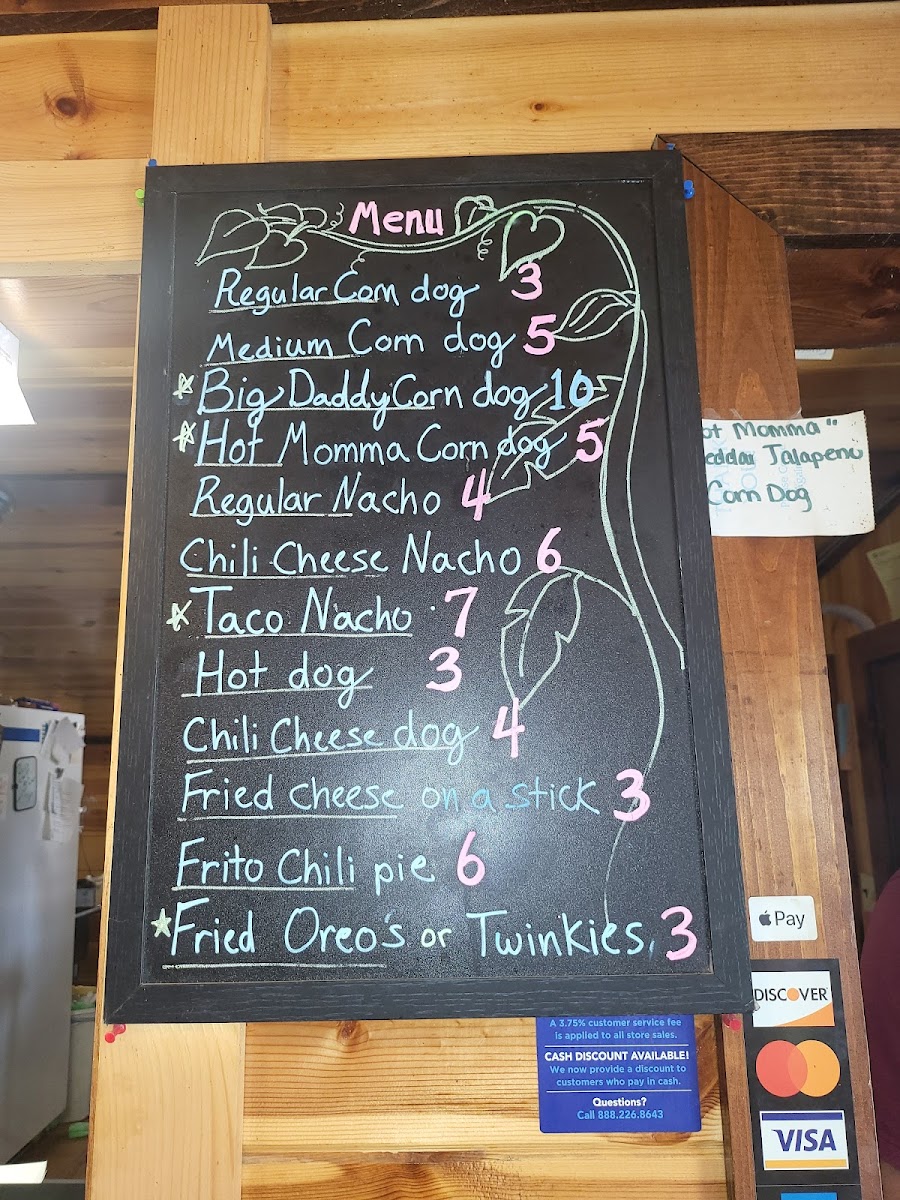 Menu
Regular Corn dog 3
Medium Corn dog 5
Big Daddy Corn dog 10
Hot Momma Corn dog 5
Regular Nacho 4
Chili Cheese Nacho 6
Taco Nacho 7
Hot dog 3
Chili Cheese dog 4
Fried cheese on a stick 3
Frito Chili pie 6
Fried Oreo's or Twinkies 3
ot Momma"
eddar Jalapeno
Corn Dog
Pay
DISCOVER
VISA
A 3.75% customer service fee
is applied to all store sales.
CASH DISCOUNT AVAILABLE!
We now provide a discount to
customers who pay in cash.
Questions?
Call 888.226.8643